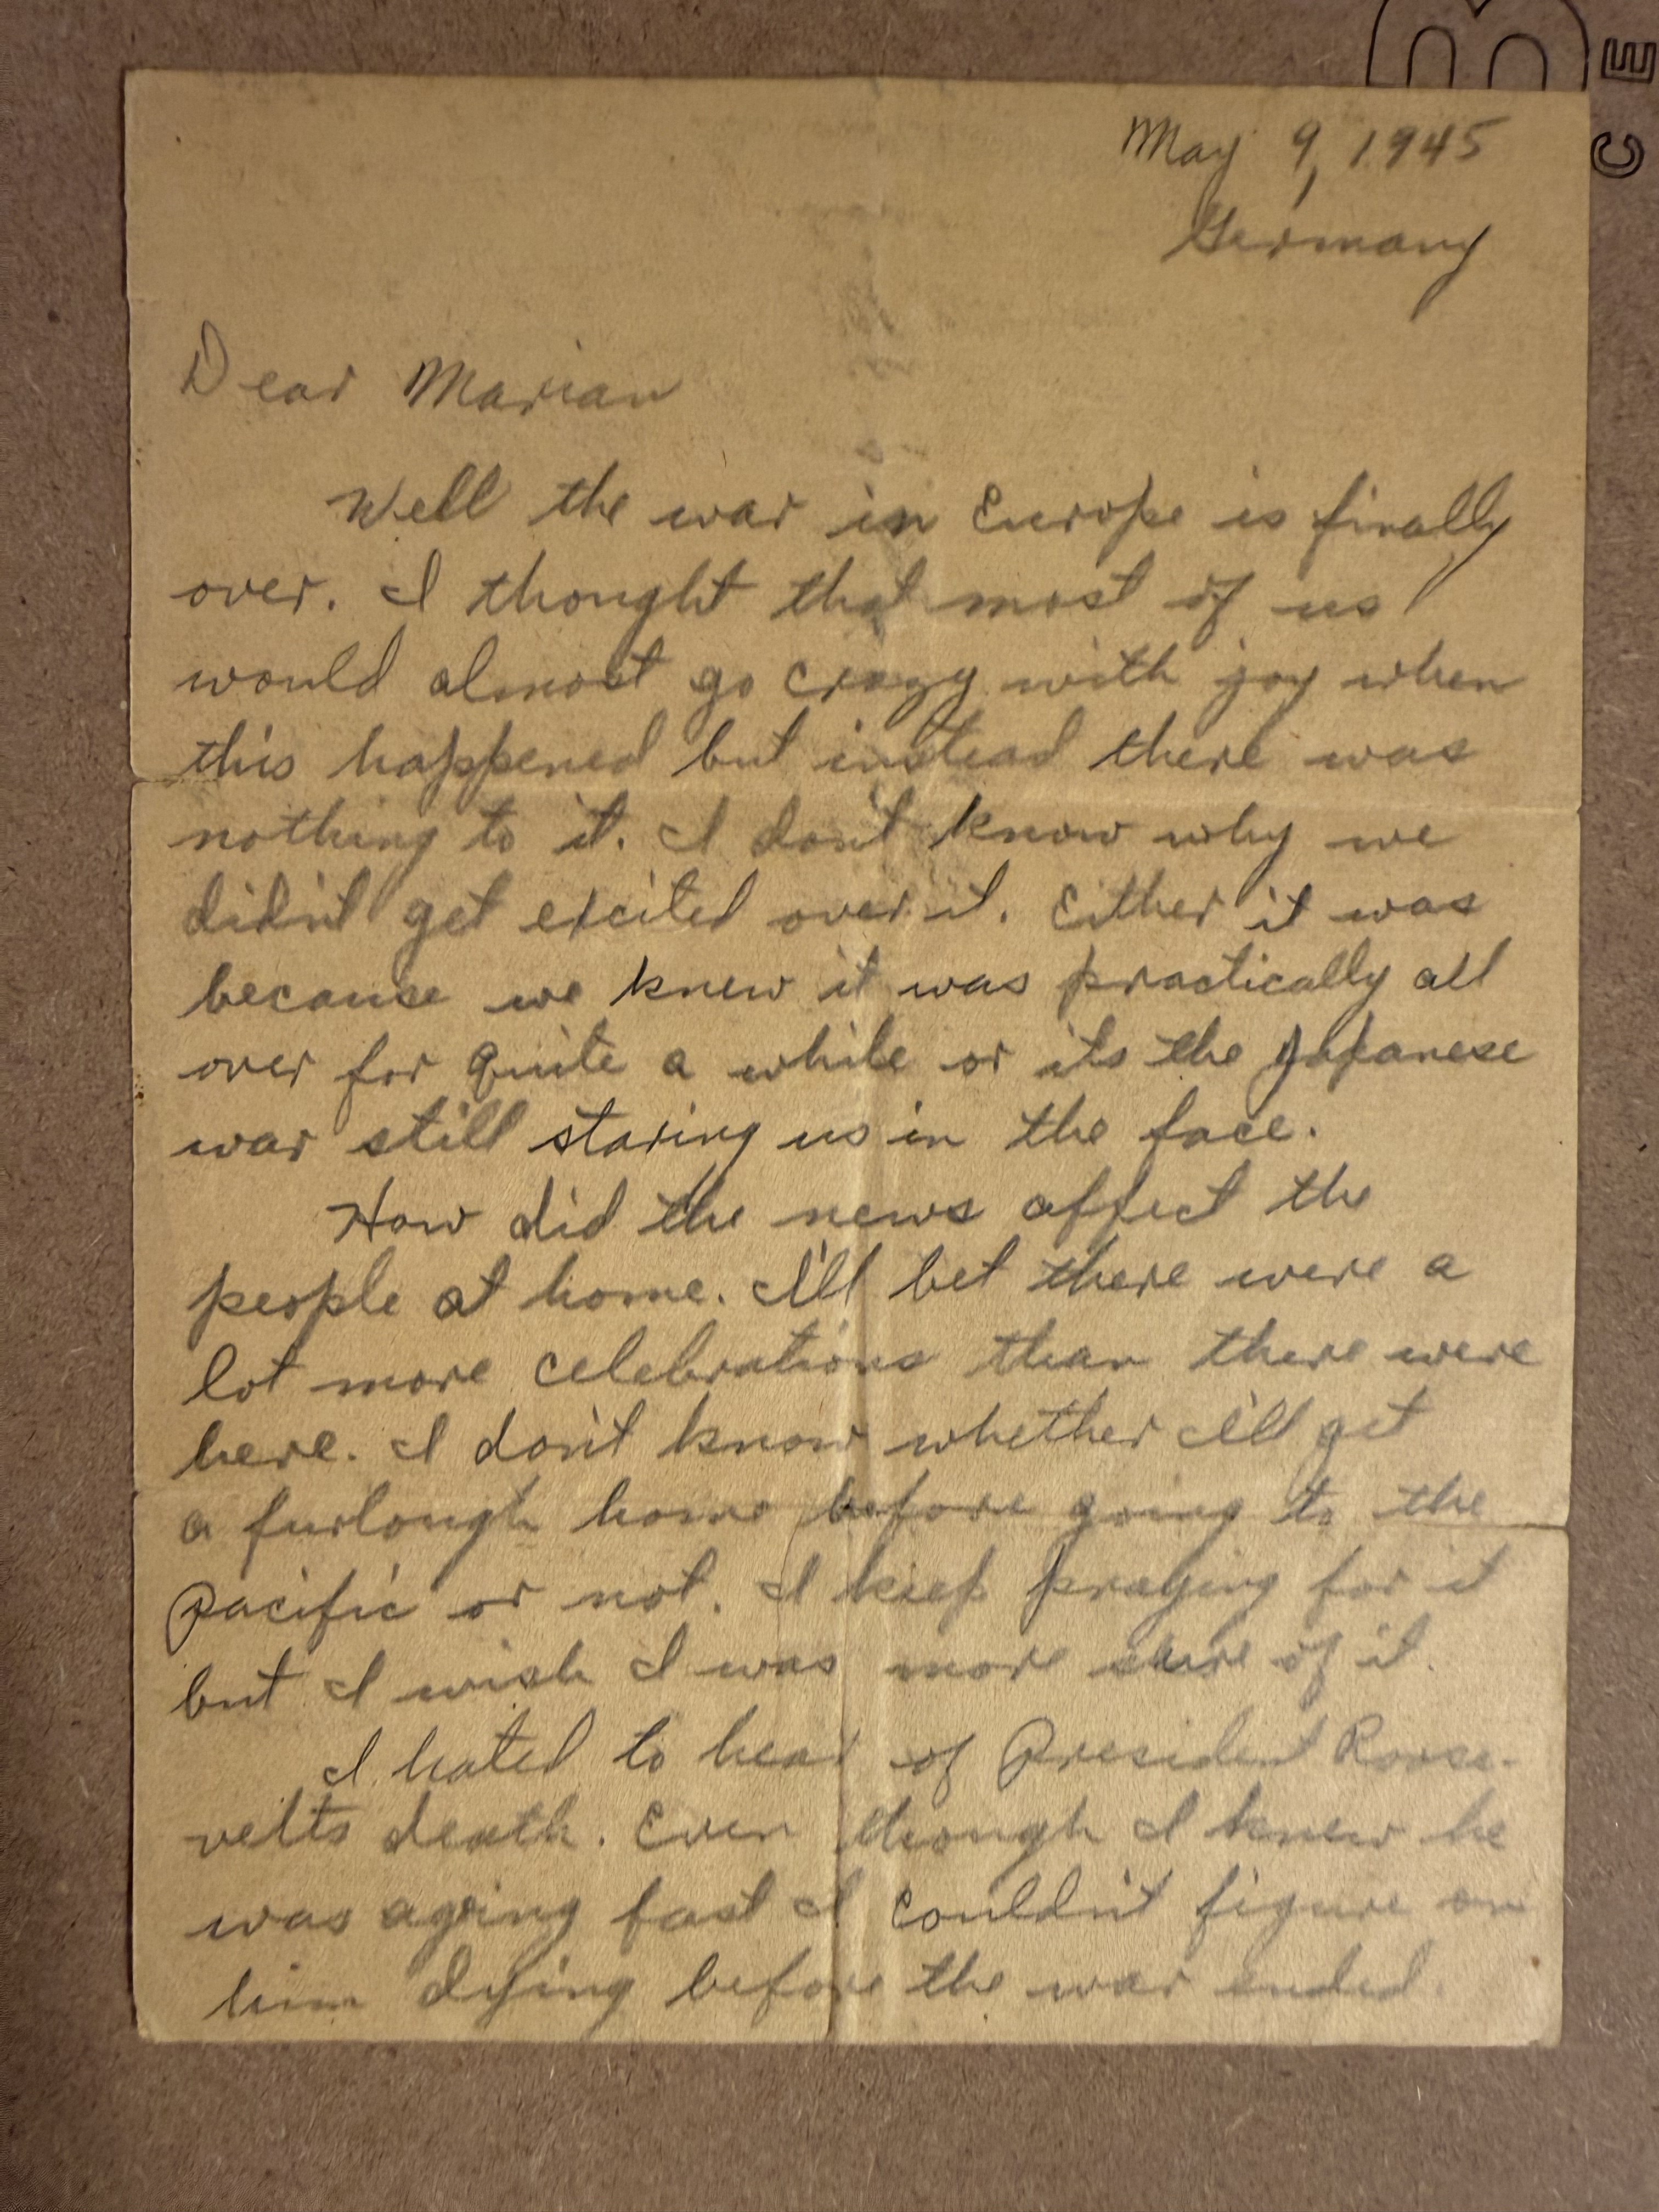 B
CE
May 9, 1945
Germany
Dear Marian
Well the war in Europe is finally
over. I thought that most of us
would almost go crazy with joy when
this happened but instead there was
nothing to it. I don't know why we
didn't get excited over it. Either it was
because we knew it was practically all
over for quite a while or its the Japanese
war still staring us in the face.
How did the news affect the
people at home. I'll bet there were a
lot more celebrations than there were
here. I don't know whether I'll get
a furlough home before going to the
Pacific or not. I keep praying for it
but I wish I was more sure of it.
I hated to hear of President Roose-
velts death. Even though I knew he
was ageing fast I couldn't figure on
him dying before the war ended.